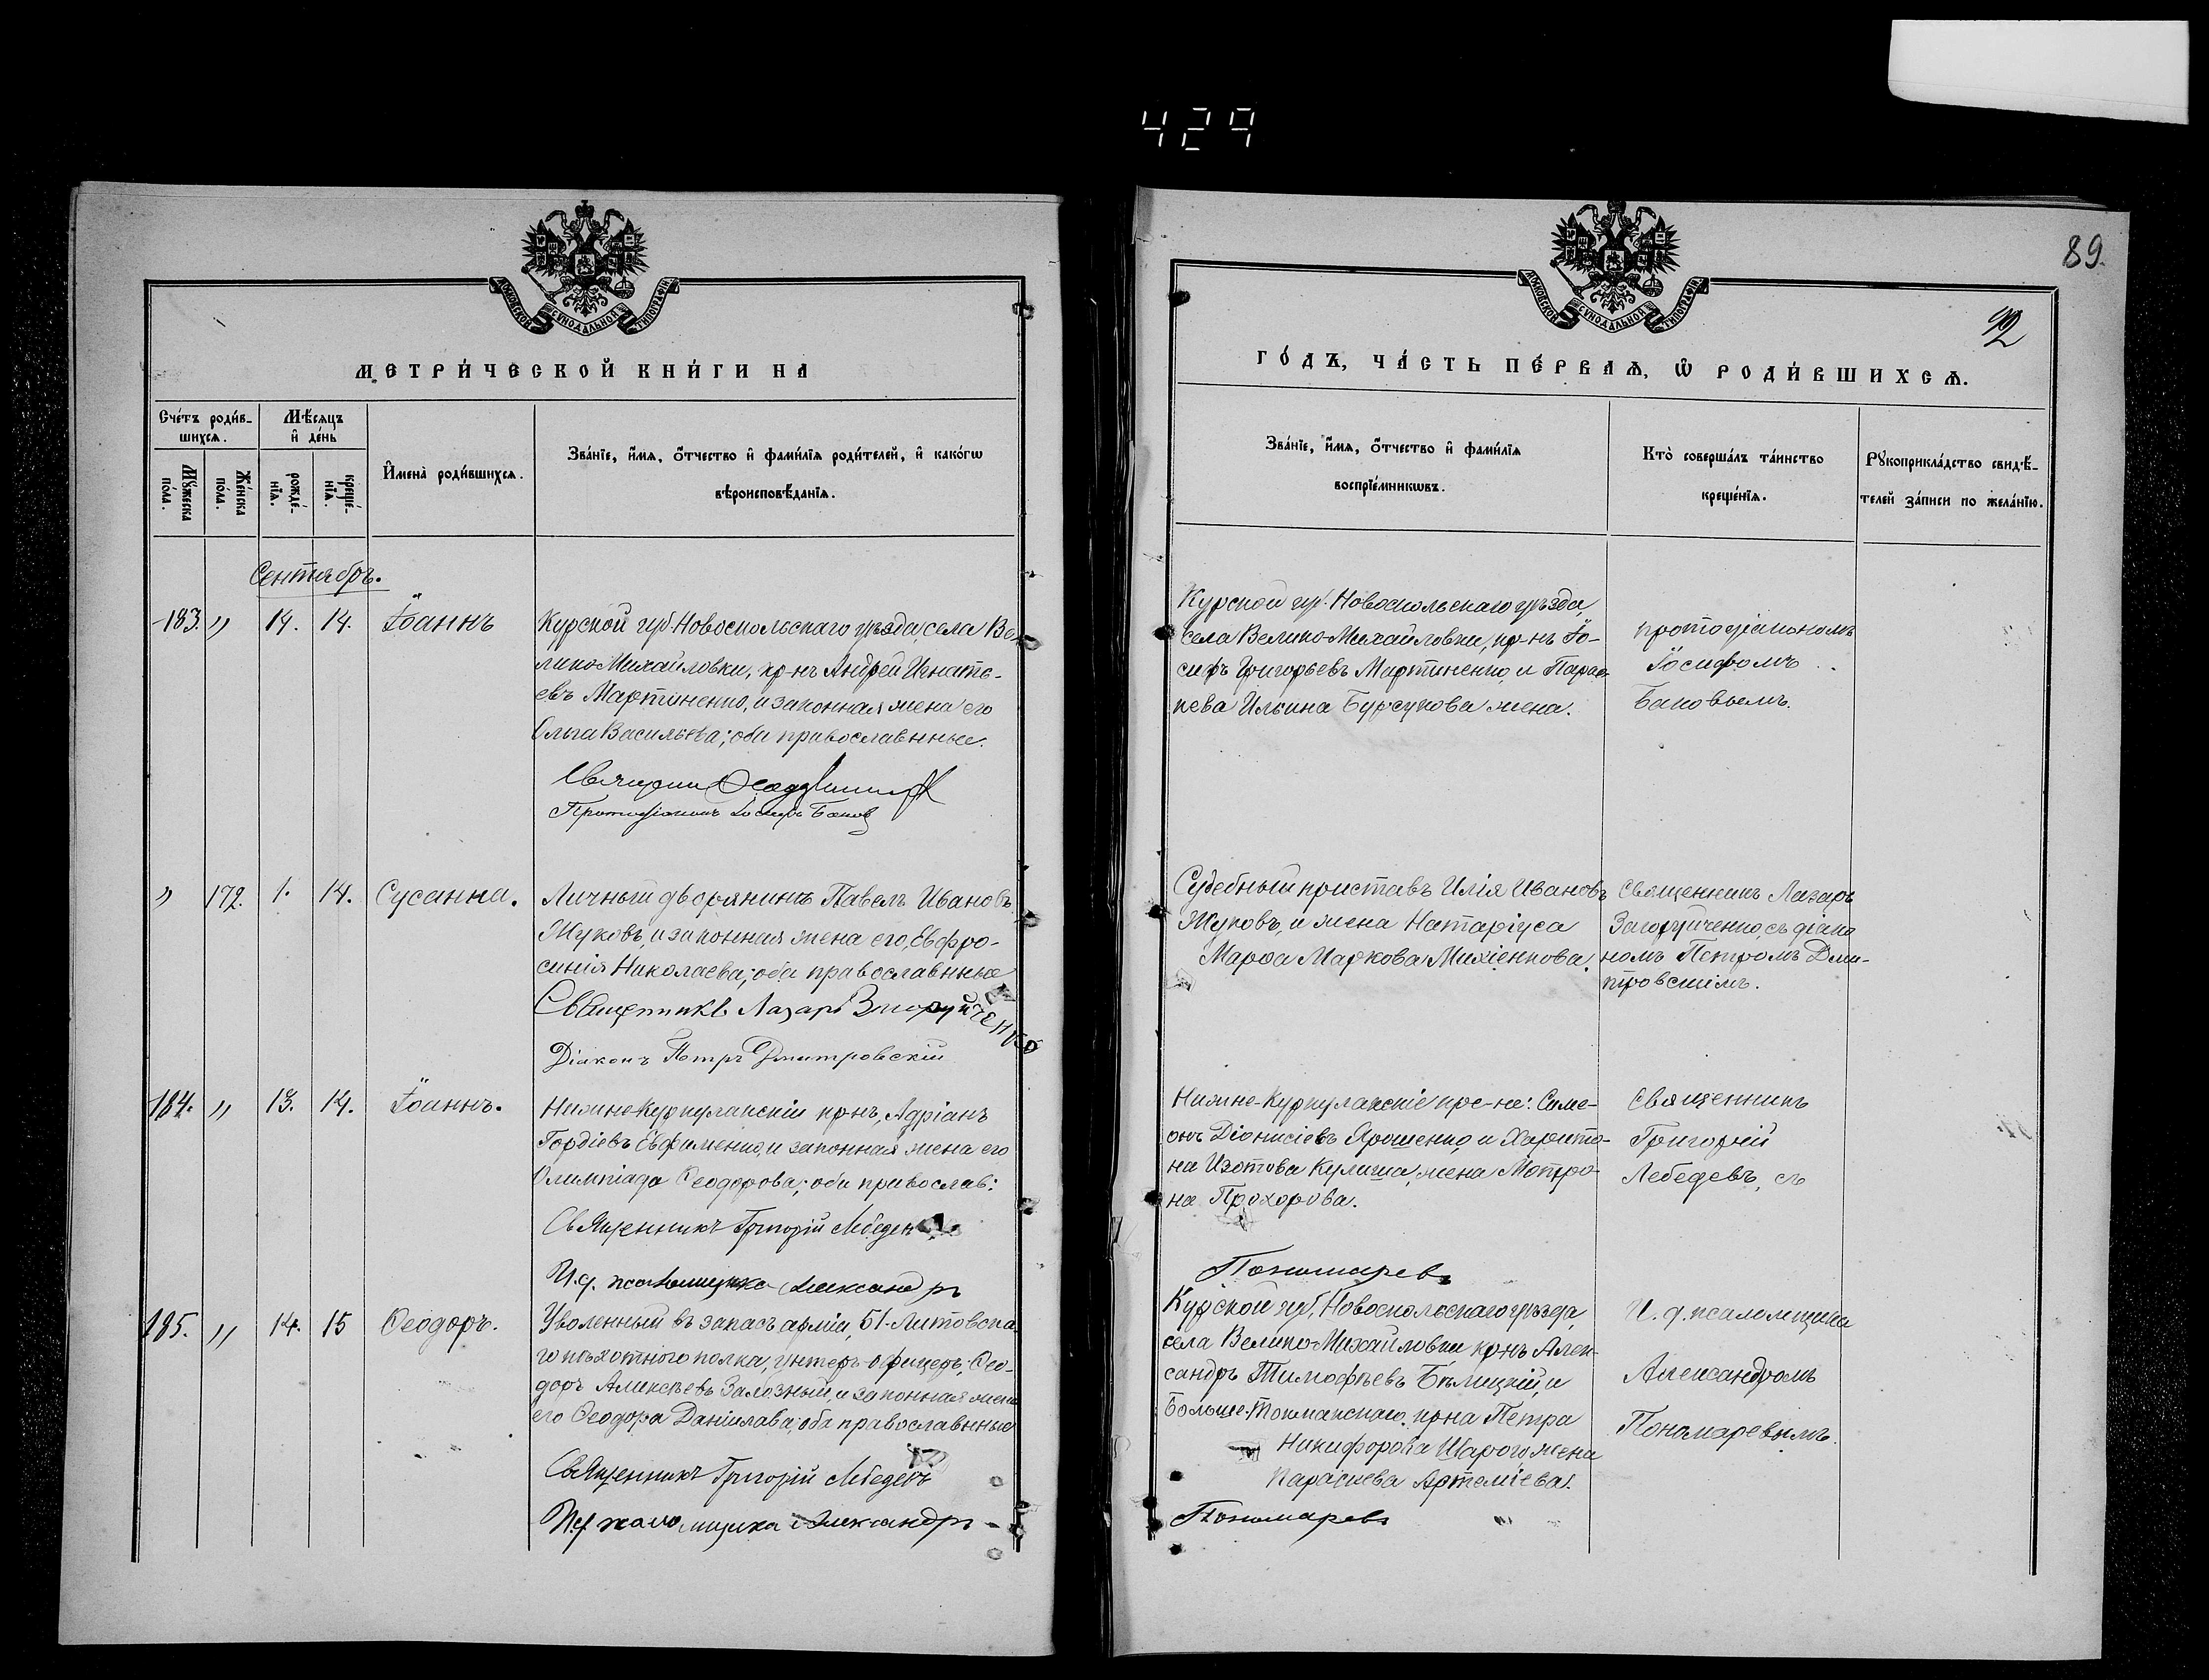 429
89.
92
МОСКОВСКОЙ СѴНОДАЛЬНОЙ ТИПОГРАФІИ
МЕТРИ́ЧЕСКОЙ КНИ́ГИ НА
Сче́тъ роди́в-
шихсѧ.
Мѣ́сяцъ
и҆ де́нь
Мꙋ́жеска по́ла.
Же́нска по́ла.
рожде́-
нїѧ.
креще́-
нїѧ.
И҆мена̀ роди́вшихсѧ.
Зва́нїе, и҆́мѧ, ѻ҆́тчество и҆ фамѝлїѧ роди́телей, и҆ како́гѡ
вѣроисповѣ́данїѧ.
Сентябрь.
183.
"
14.
14.
Іоаннъ
Курской губ. Новооскольскаго уѣзда, села Ве-
лико-Михайловки, кр-нъ Андрей Игнатъ-
евъ Мартиненко, и законная жена его
Ольга Васильева; оба православнные.
Протодіаконъ Іосифъ Баков
"
172.
1.
14.
Сусанна.
Личный дворянинъ Павелъ Ивановъ
Жуковъ, и законная жена его, Евфро-
синія Николаева; оба православнные
Священникъ Лазарь Загоруйченко
Діаконъ Петръ Дмитровскій
184.
"
13.
14.
Іоаннъ.
Нижне-Куркулакскій кр-нъ, Адріанъ
Гордіевъ Евфименко, и законная жена его
Олимпіада Ѳеодорова; оба православ:
Священникъ Григорій Лебедевъ
И. д. псаломщика Александръ
185.
"
14.
15
Ѳеодоръ.
Уволенный въ запасъ арміи, 51-Литовска-
го пѣхотнаго полка, унтеръ-офицеръ, Ѳео-
доръ Алексѣевъ Залозный, и законная жена
его Ѳеодора Даніилава; оба православнные
Священникъ Григорій Лебедевъ
И. д. псаломщика Александръ -
МОСКОВСКОЙ СѴНОДАЛЬНОЙ ТИПОГРАФІИ
ГО́ДЪ, ЧА́СТЬ ПЕ́РВАѦ, Ѡ҆ РОДИ́ВШИХСѦ.
Зва́нїе, и҆́мѧ, ѻ҆́тчество и҆ фамѝлїѧ
воспрїе́мникѡвъ.
Кто̀ соверша́лъ та́инство
креще́нїѧ.
Рꙋкоприкла́дство свидѣ́-
телей за́писи по жела́нїю.
Курской губ. Новооскольскаго уѣзда,
села Велико-Михайловки, кр-нъ Іо-
сифъ Григорьевъ Мартиненко, и Парас-
кева Ильина Бурсукова жена.
протодіакономъ
Іосифомъ
Баковъемъ.
Судебный приставъ Илія Ивановъ
Жуковъ, и жена Натаріуса
Марѳа Маркова Михіенкова.
Священникъ Лазарь
Загоруйченко, съ діако
номъ Петромъ Дми-
тровскимъ.
Нижне-Куркулакскіе кре-не: Симе-
онъ Діонисіевъ Ярошенко, и Харито-
на Изотова Кулиша, жена Мотро-
на Прохорова.
Священникъ
Григорій
Лебедевъ, съ
Пономаревъ
Курской губ, Новооскольскаго уѣзда,
села Велико-Михайловки кр-нъ Алек-
сандръ Тимофѣевъ Бѣлицкій, и
Больше-Токмакскаго кр-на Петра
Никифорова Шарого жена
Параскева Артеміева.
И. д. псаломщика
Александромъ
Пономаревымъ.
Пономаревъ